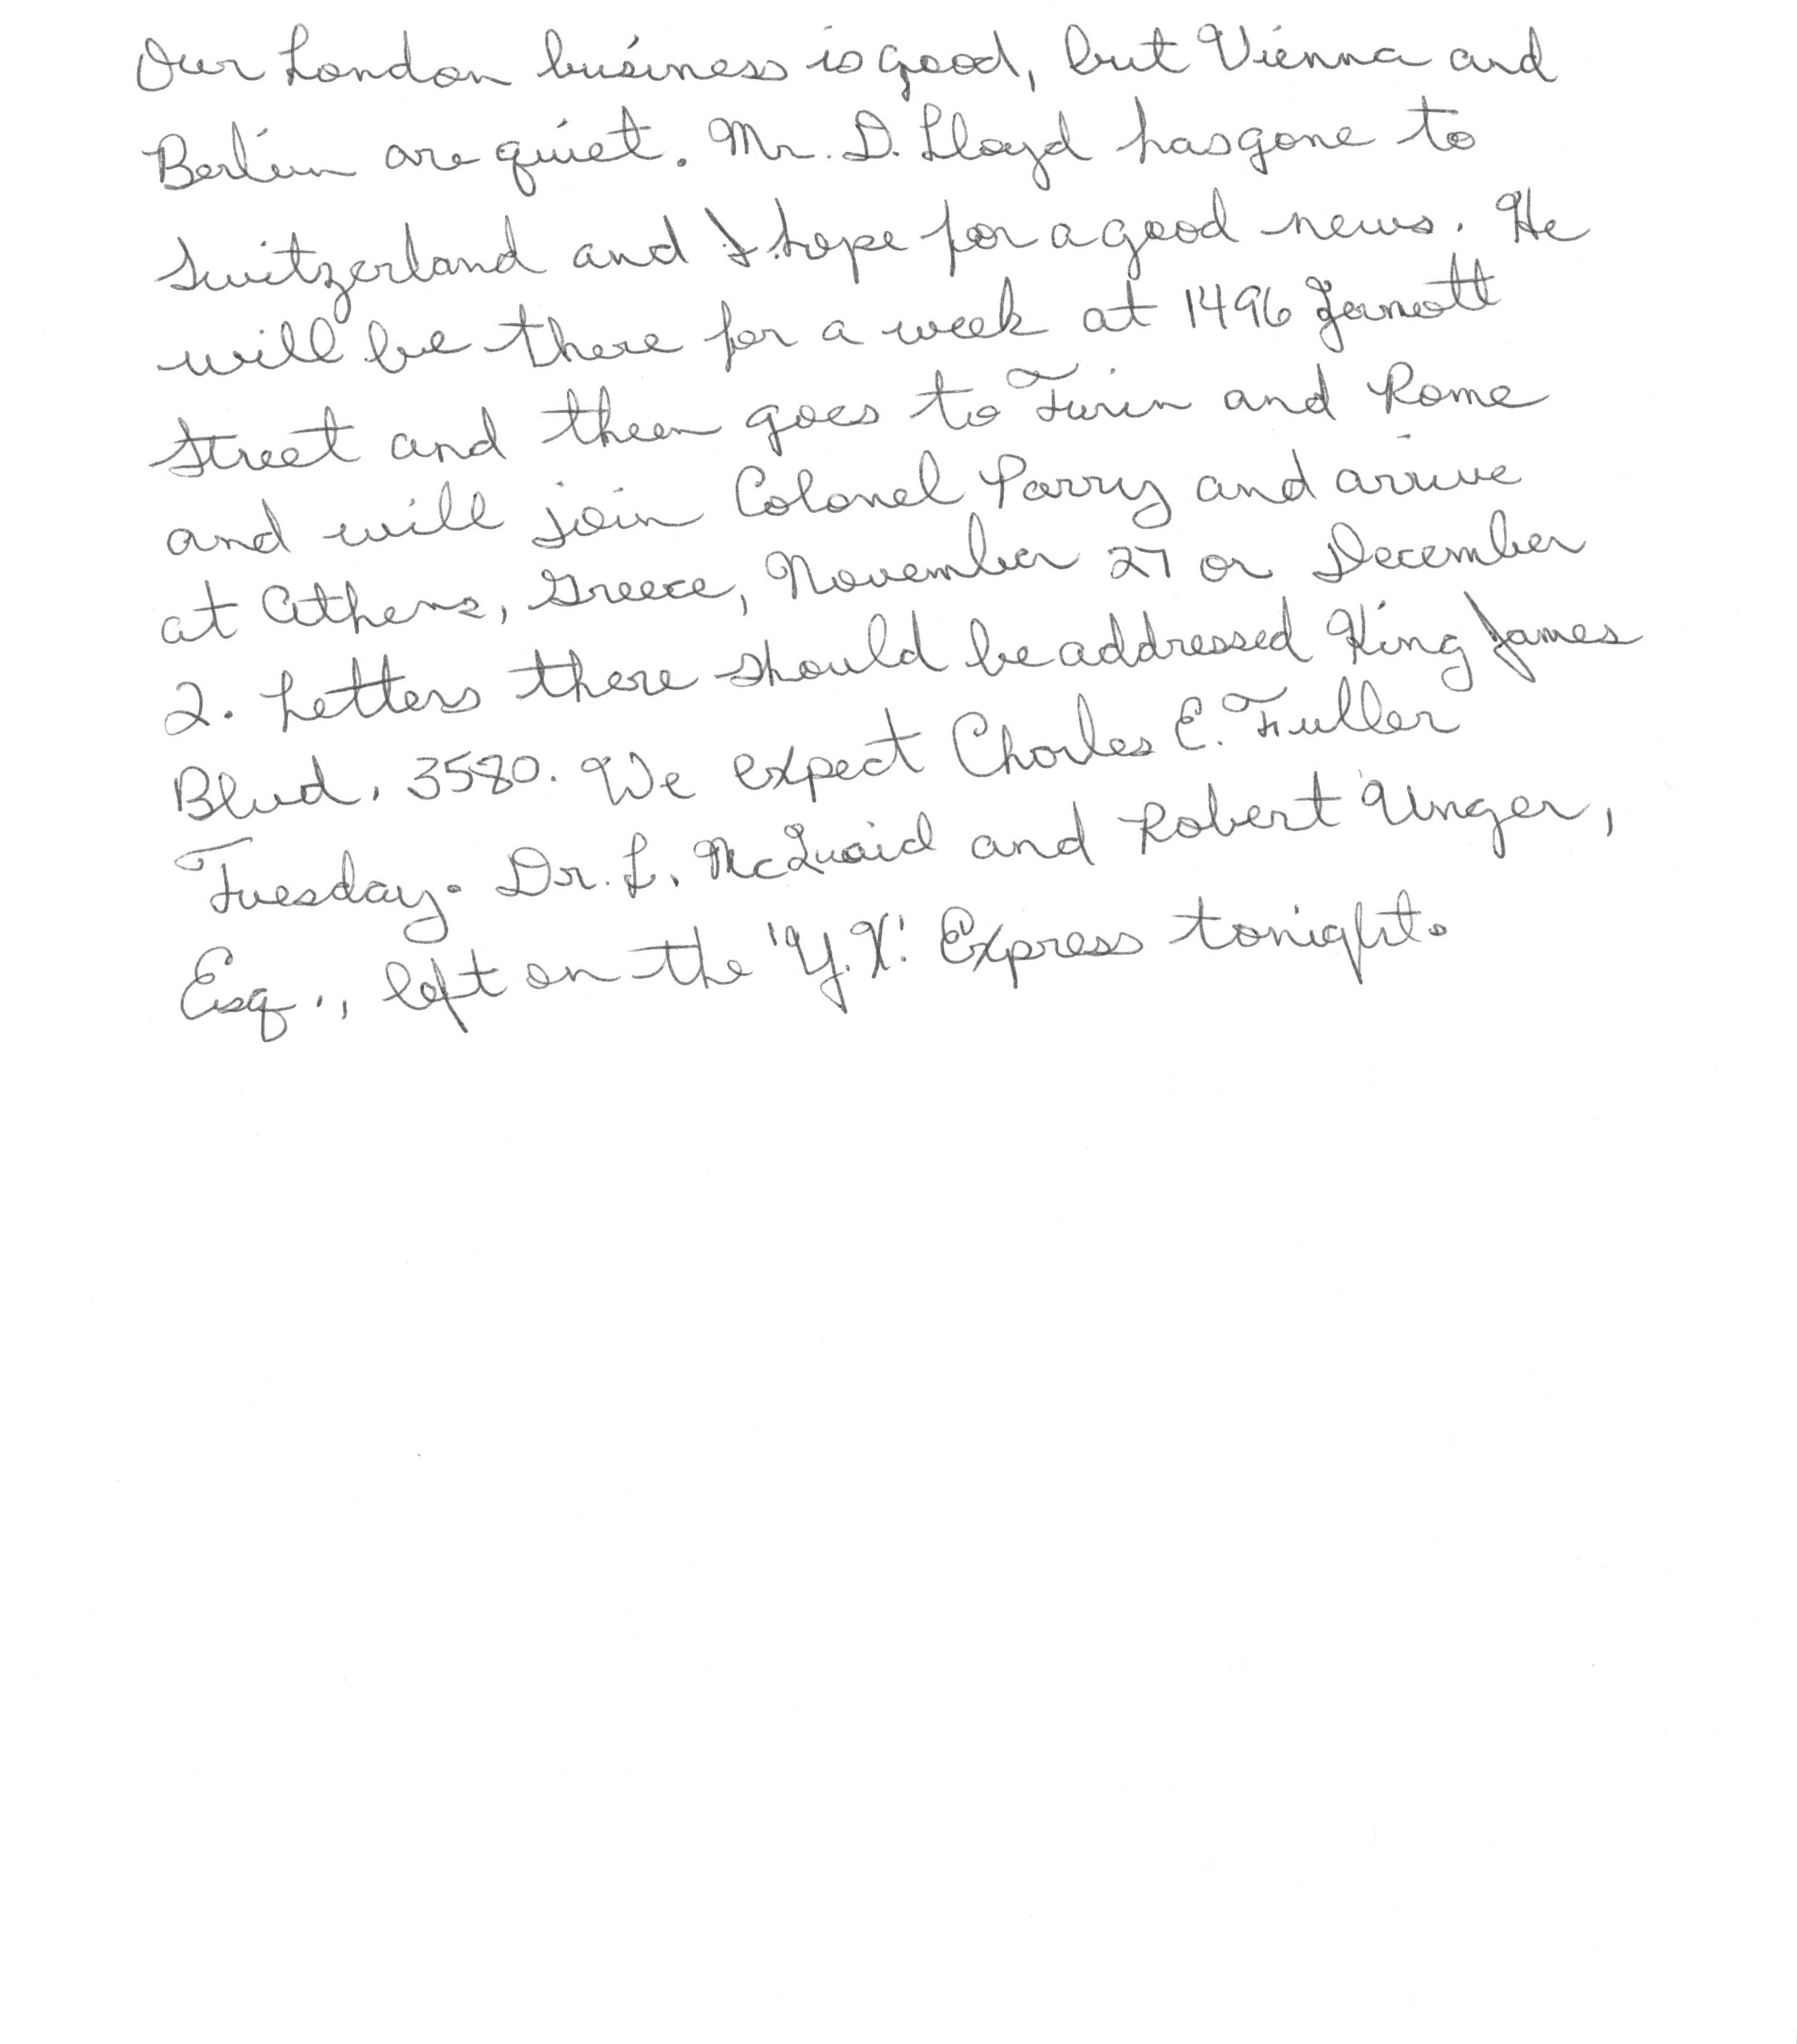 Our London business is good, but Vienna and
Berlin are quiet. Mr. D. Lloyd has gone to
Switzerland and I hope for a good news. He
will be there for a week at 1496 Zermott
Street and then goes to Turin and Rome
and will join Colonel Parry and arrive
at Athens, Greece, November 27 or December
2. Letters there should be addressed King James
Blvd. 3580. We expect Charles E. Fuller
Tuesday. Dr. L. McQuaid and Robert Unger,
Esq., left on the 'Y.X.' Express tonight.